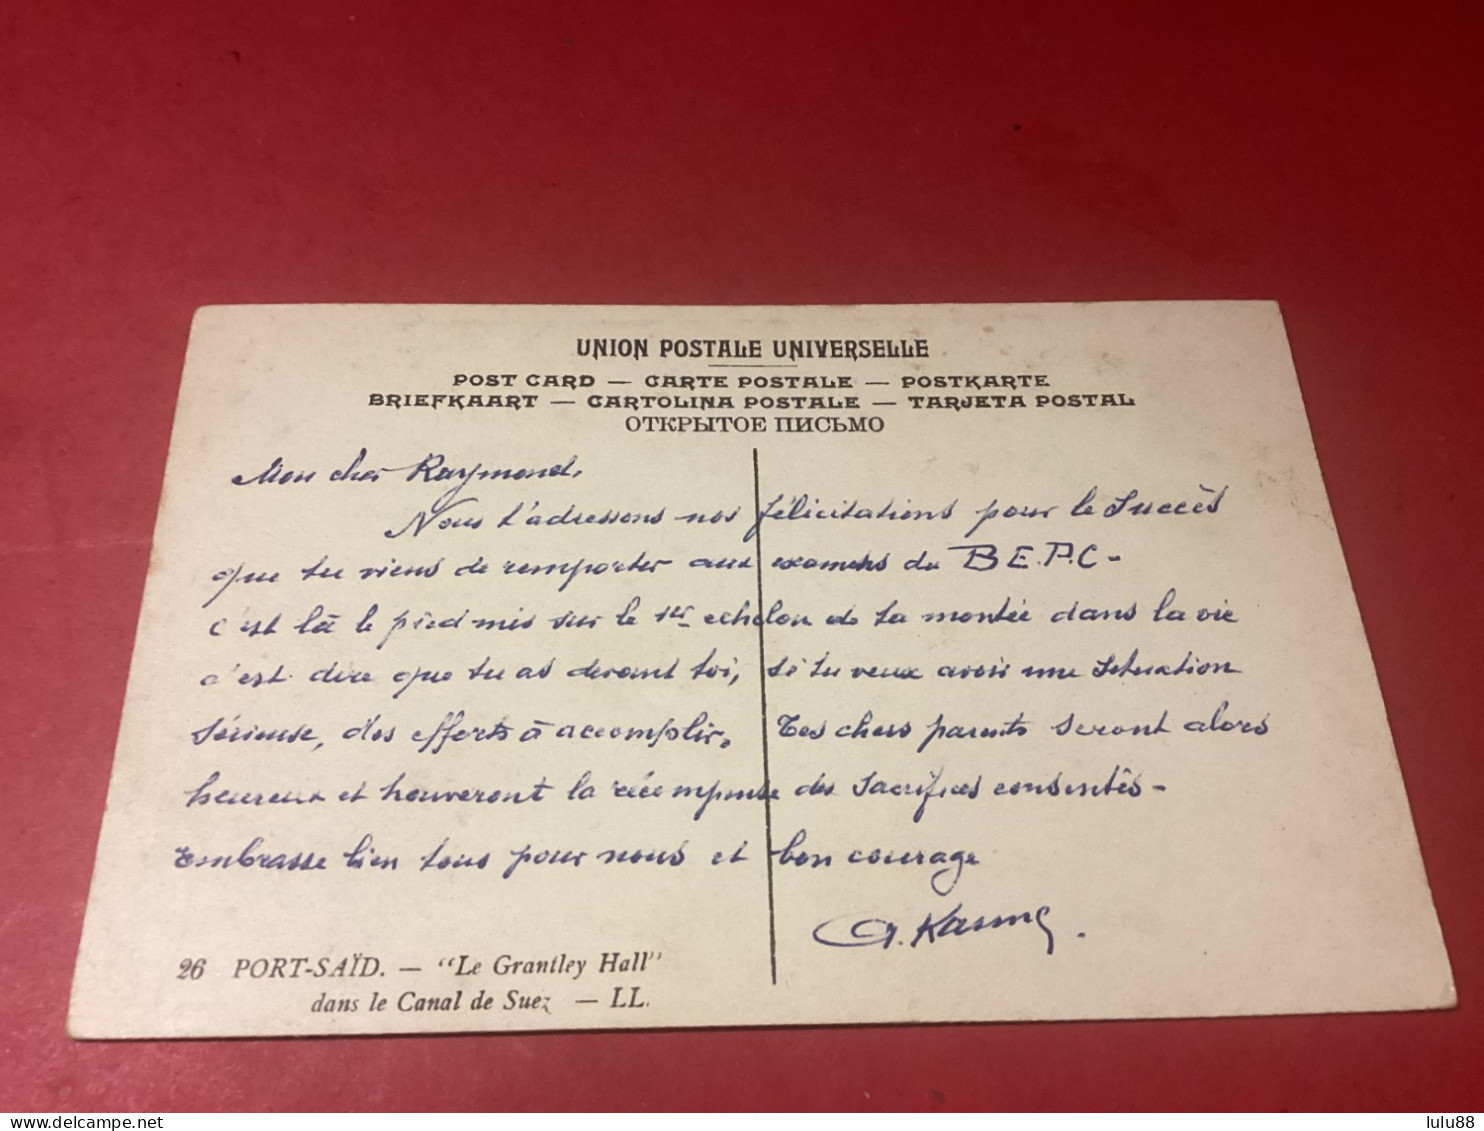 UNION POSTALE UNIVERSELLE
POST CARD — CARTE POSTALE — POSTKARTE
BRIEFKAART — CARTOLINA POSTALE — TARJETA POSTAL
ОТКРЫТОЕ ПИСЬМО
Mon cher Raymond,
Nous t'adressons nos félicitations pour le succès
que tu viens de remporter aux examens du B E.P.C -
c'est là le pied mis sur le 1er echelon de la montée dans la vie
c'est dire que tu as devant toi, si tu veux avoir une situation
sérieuse, des efforts à accomplir. Tes chers parents seront alors
heureux et trouveront la récompense des sacrifices consentis -
Embrasse bien tous pour nous et bon courage
26 PORT-SAÏD. — "Le Grantley Hall"
dans le Canal de Suez — LL.
delcampe.net
lulu88